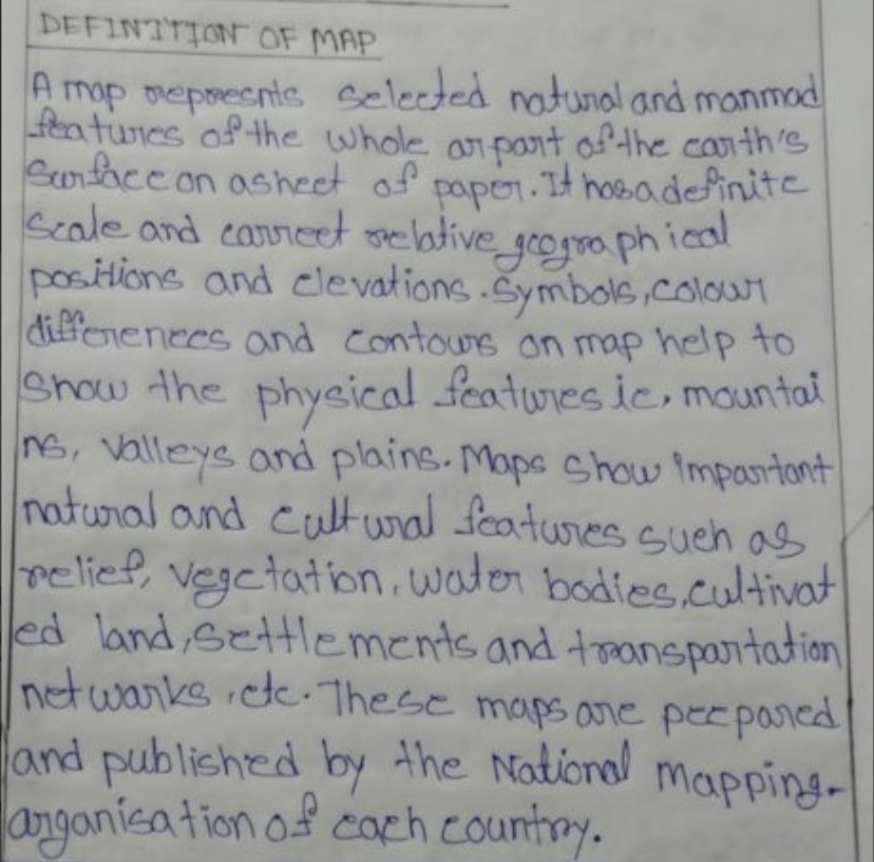 DEFINITION OF MAP
A map repreesnts selected natural and manmad
features of the whole or part of the earth's
Surface on a sheet of paper. It has a definite
Scale and correct relative geographical
positions and elevations. Symbols, colour
differences and contours on map help to
Show the physical features ie, mountai
ns, Valleys and plains. Maps Show important
natural and cultural features such as
relief, vegetation, water bodies, cultivat
ed land, settlements and transportation
networks, etc. These maps are peepared
and published by the National Mapping-
organisation of each country.